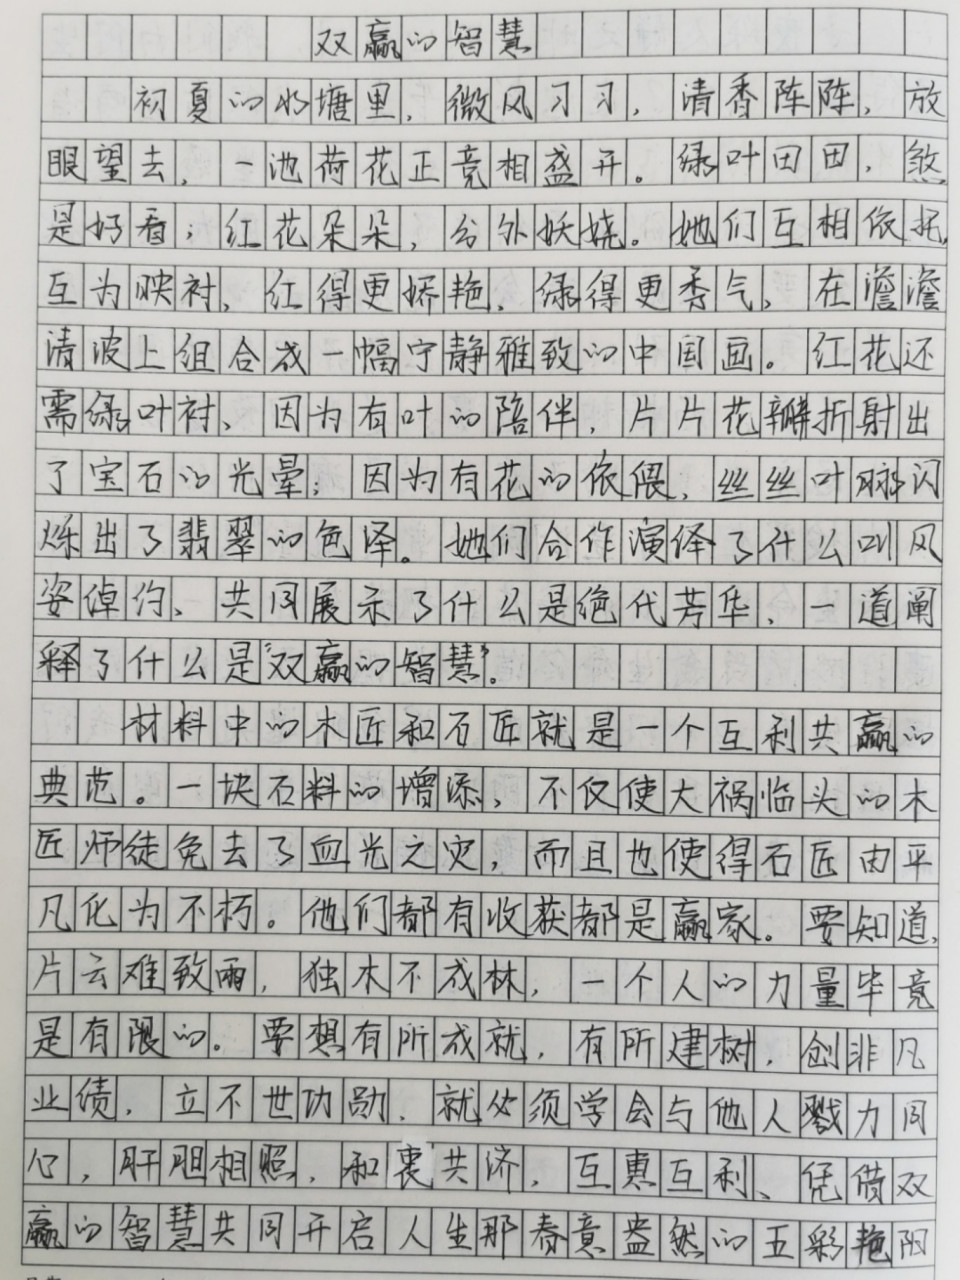 双赢的智慧
初夏的水塘里，微风习习，清香阵阵，放
眼望去，一池荷花正竞相盛开。绿叶田田，煞
是好看；红花朵朵，分外妖娆。她们互相依托，
互为映衬，红得更娇艳，绿得更秀气，在澹澹
清波上组合成一幅宁静雅致的中国画。红花还
需绿叶衬，因为有叶的陪伴，片片花瓣折射出
了宝石的光晕；因为有花的依偎，丝丝叶脉闪
烁出了翡翠的色泽。她们合作演绎了什么叫风
姿绰约，共同展示了什么是绝代芳华，一道阐
释了什么是“双赢的智慧”。
材料中的木匠和石匠就是一个互利共赢的
典范。一块石料的增添，不仅使大祸临头的木
匠师徒免去了血光之灾，而且也使得石匠由平
凡化为不朽。他们都有收获都是赢家。要知道，
片云难致雨，独木不成林，一个人的力量毕竟
是有限的。要想有所成就，有所建树，创非凡
业绩，立不世功勋，就必须学会与他人戮力同
心，肝胆相照，和衷共济，互惠互利、凭借双
赢的智慧共同开启人生那春意盎然的五彩艳阳